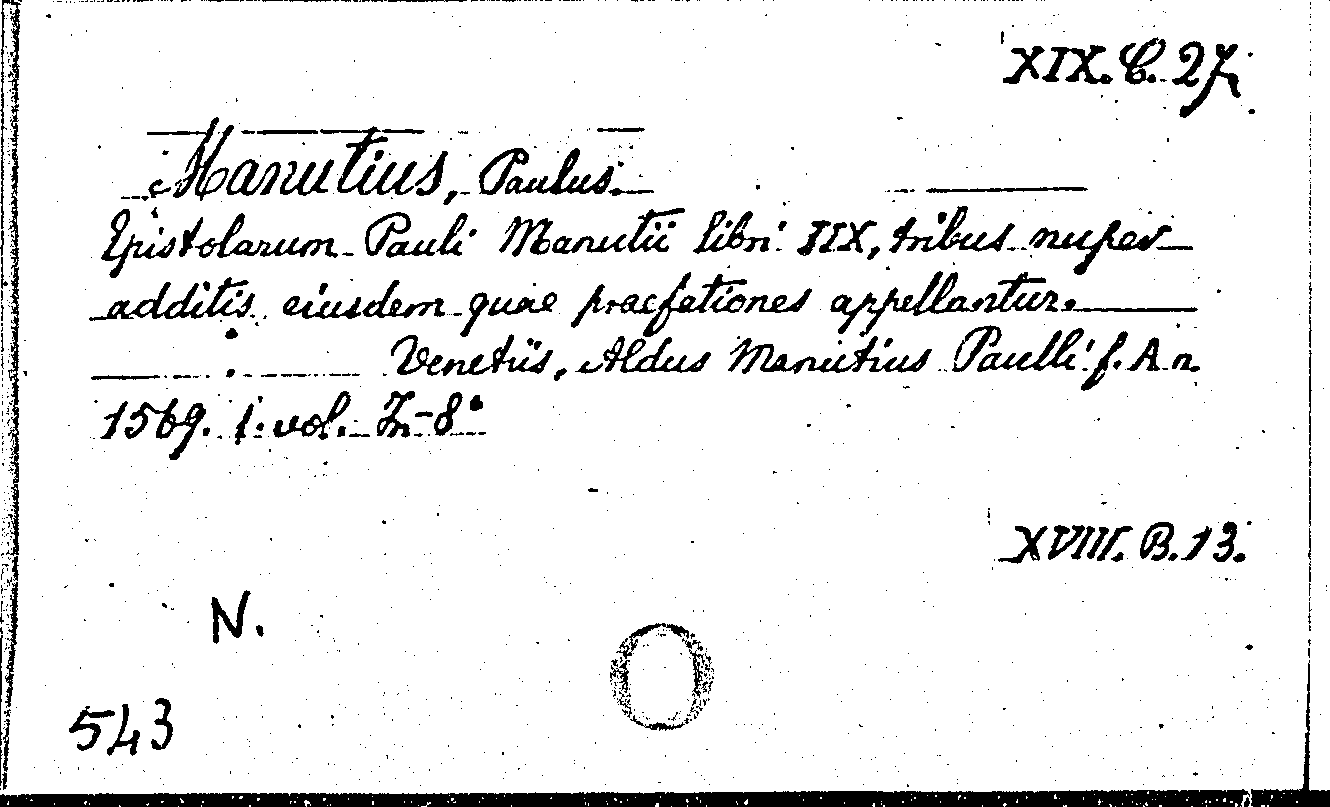 XIX. C. 27.
Manutius, Paulus.
Epistolarum Pauli Manutii libri IIX, tribus nuper
additis eiusdem quae praefationes appellantur.
Venetiis, Aldus Manutius Paulli f. A n.
1569. 1. vol. In-8°
XVIII. B. 13.
N.
543